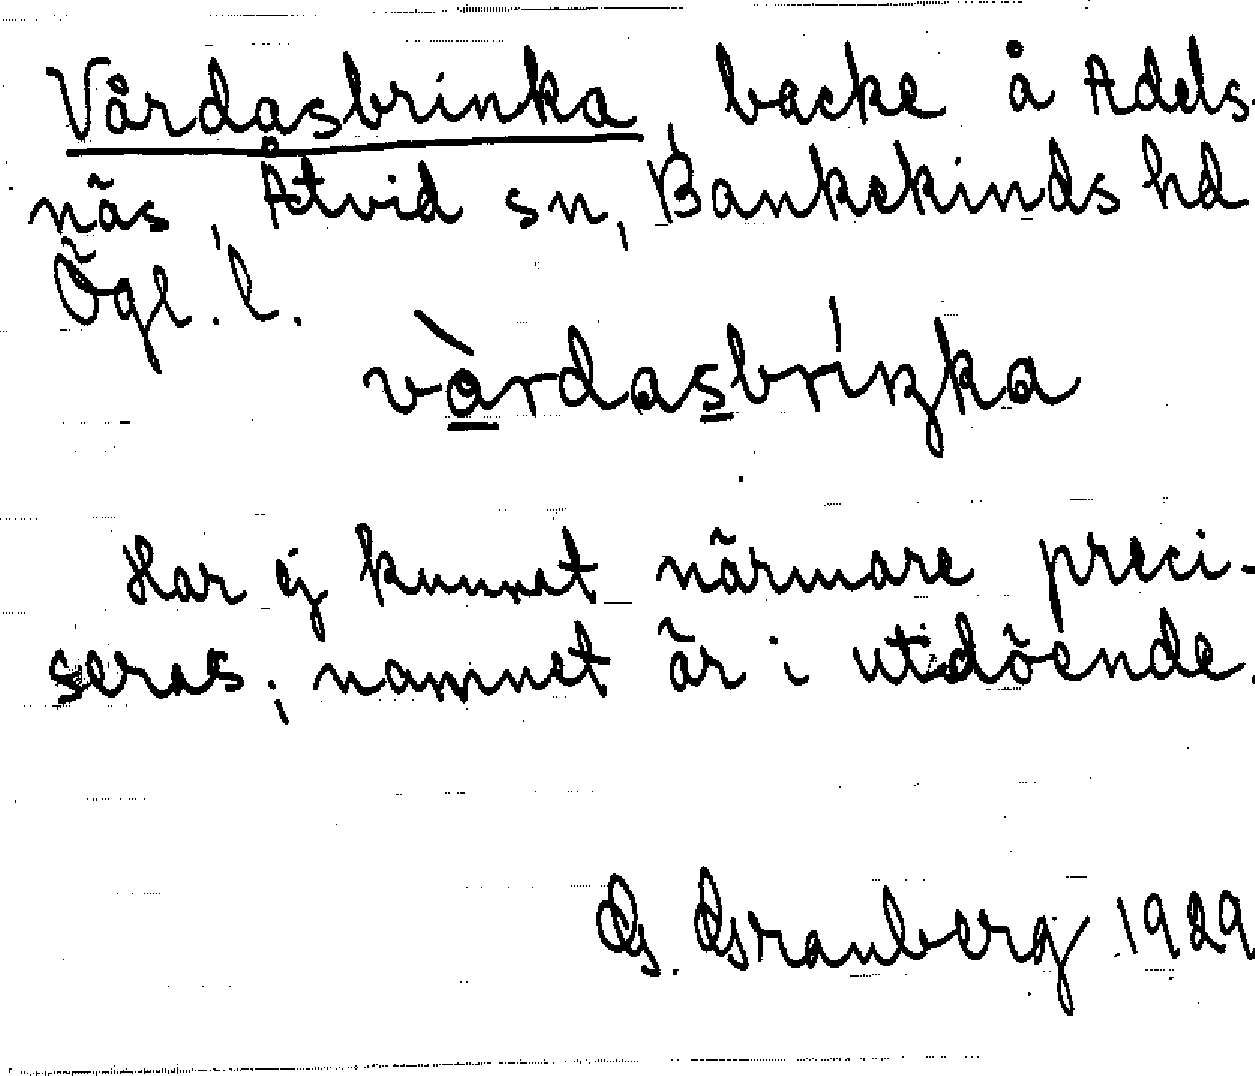 Vårdasbrinka, backe å Adels-
näs, Åtvid sn, Bankekinds hd
Ögl. l.
vàrdasbríŋka
Har ej kunnat närmare preci-
seras; namnet är i utdöende.
G. Granberg 1929